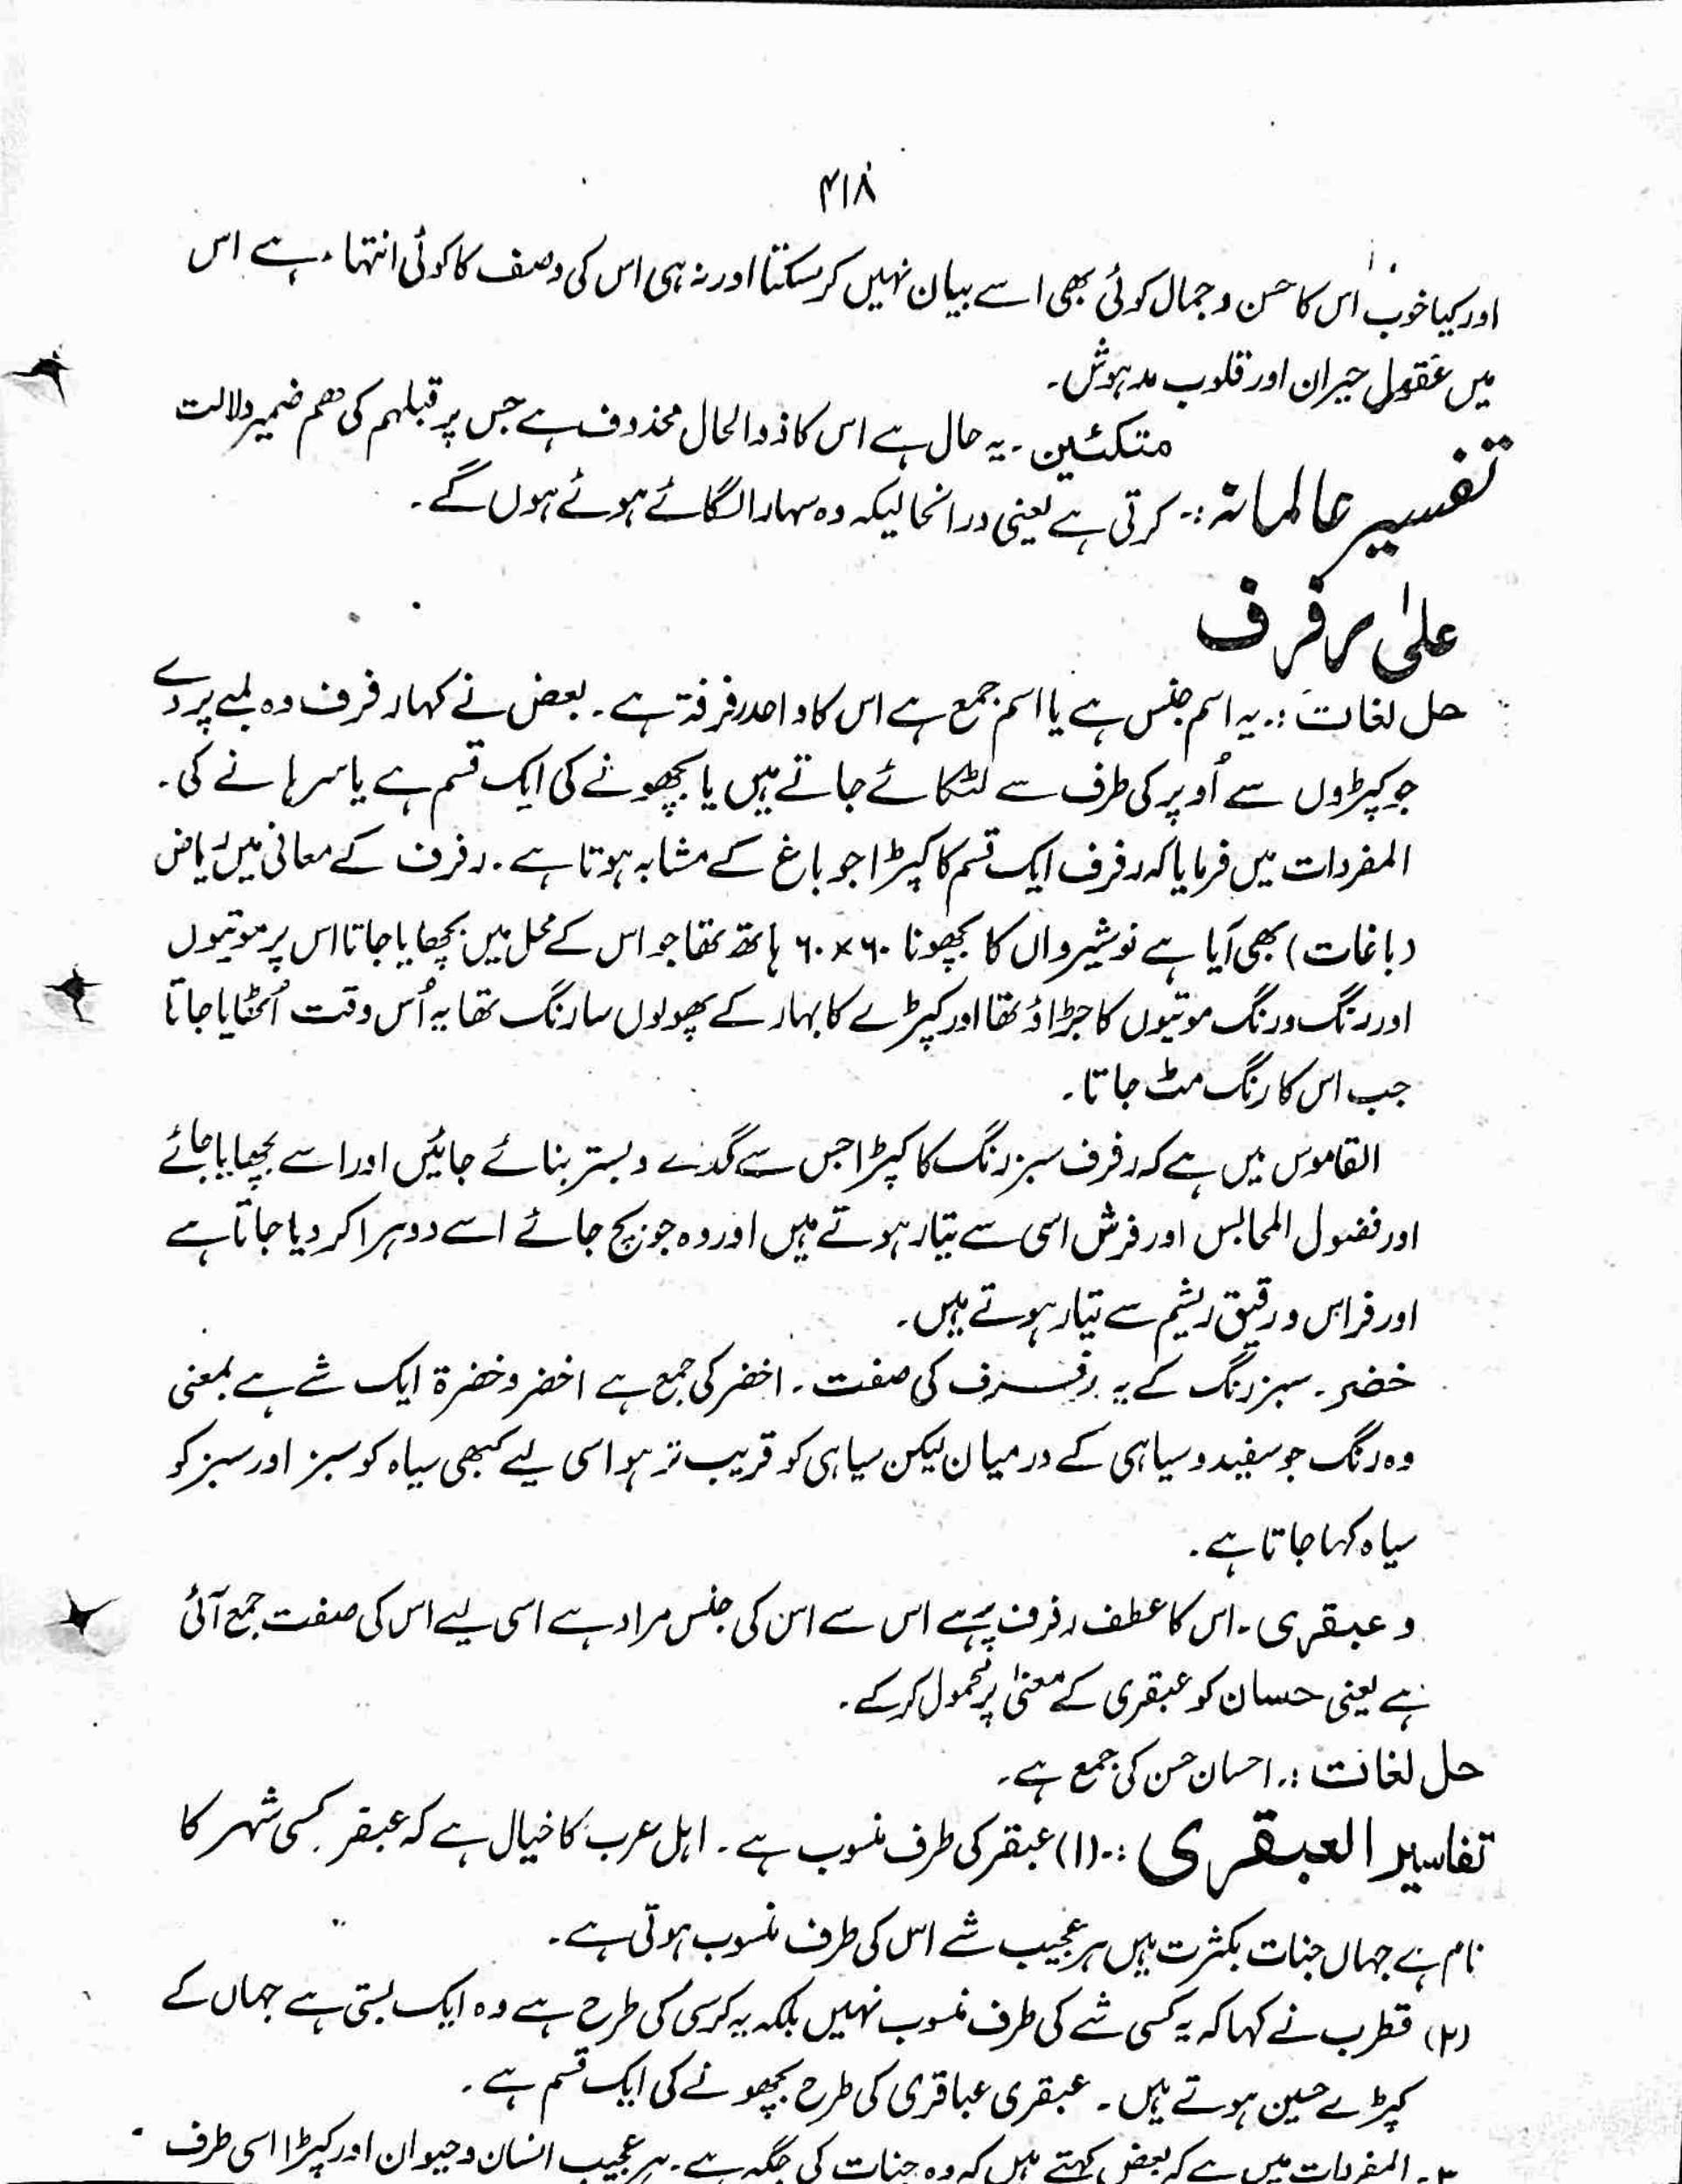 ۴۱۸
اور کیا خوب اس کا حسن و جمال کوئی بھی اسے بیان نہیں کر سکتا اور نہ ہی اس کی وصف کا کوئی انتہاء ہے اس
میں عقول حیران اور قلوب مدہوش۔
متکئین ۔ یہ حال ہے اس کا ذوالحال محذوف ہے جس پر قبلہم کی ھم ضمیر دلالت
تفسیر عالمانہ :۔ کرتی ہے یعنی درانحالیکہ وہ سہارا لگائے ہوئے ہوں گے ۔
علیٰ رفرف
حل لغات :۔ یہ اسم جنس ہے یا اسم جمع ہے اس کا واحد رفرفۃ ہے ۔ بعض نے کہا رفرف وہ لمبے پردے
جو کپڑوں سے اُوپر کی طرف سے لٹکائے جاتے ہیں یا بچھونے کی ایک قسم ہے یا سرہانے کی ۔
المفردات میں فرمایا کہ رفرف ایک قسم کا کپڑا جو باغ کے مشابہ ہوتا ہے ۔ رفرف کے معانی میں ریاض
(باغات) بھی آیا ہے نوشیرواں کا بچھونا ۶۰×۶۰ ہاتھ تھا جو اس کے محل میں بچھایا جاتا اس پر موتیوں
اور رنگ ورنگ موتیوں کا جڑاؤ تھا اور کپڑے کا بہار کے پھولوں سا رنگ تھا یہ اُس وقت اُٹھایا جاتا
جب اس کا رنگ مٹ جاتا ۔
القاموس میں ہے کہ رفرف سبز رنگ کا کپڑا جس سے گدے و بستر بنائے جائیں اور اسے بچھایا جائے
اور فضول المحابس اور فرش اسی سے تیار ہوتے ہیں اور وہ جو بچ جائے اسے دوہرا کر دیا جاتا ہے
اور فراس و رقیق ریشم سے تیار ہوتے ہیں ۔
خضر ۔ سبز رنگ کے یہ رفرف کی صفت ۔ اخضر کی جمع ہے اخضر و خضرۃ ایک شے ہے بمعنی
وہ رنگ جو سفید و سیاہی کے درمیان لیکن سیاہی کو قریب تر ہو اسی لیے کبھی سیاہ کو سبز اور سبز کو
سیاہ کہا جاتا ہے ۔
و عبقری ۔ اس کا عطف رفرف پر ہے اس سے اس کی جنس مراد ہے اسی لیے اس کی صفت جمع آئی
ہے یعنی حسان کو عبقری کے معنیٰ پر محمول کر کے ۔
حل لغات :۔ احسان حسن کی جمع ہے ۔
تفاسیر العبقری :۔ (۱) عبقر کی طرف منسوب ہے ۔ اہل عرب کا خیال ہے کہ عبقر کسی شہر کا
نام ہے جہاں جنات بکثرت ہیں ہر عجیب شے اس کی طرف منسوب ہوتی ہے ۔
(۲) قطرب نے کہا کہ یہ کسی شے کی طرف منسوب نہیں بلکہ یہ کرسی کی طرح ہے وہ ایک بستی ہے جہاں کے
کپڑے حسین ہوتے ہیں ۔ عبقری عباقری کی طرح بچھونے کی ایک قسم ہے ۔
۳۔ المفردات میں ہے کہ بعض کہتے ہیں کہ وہ جنات کی جگہ ہے ۔ ہر عجیب انسان و حیوان اور کپڑا اسی طرف